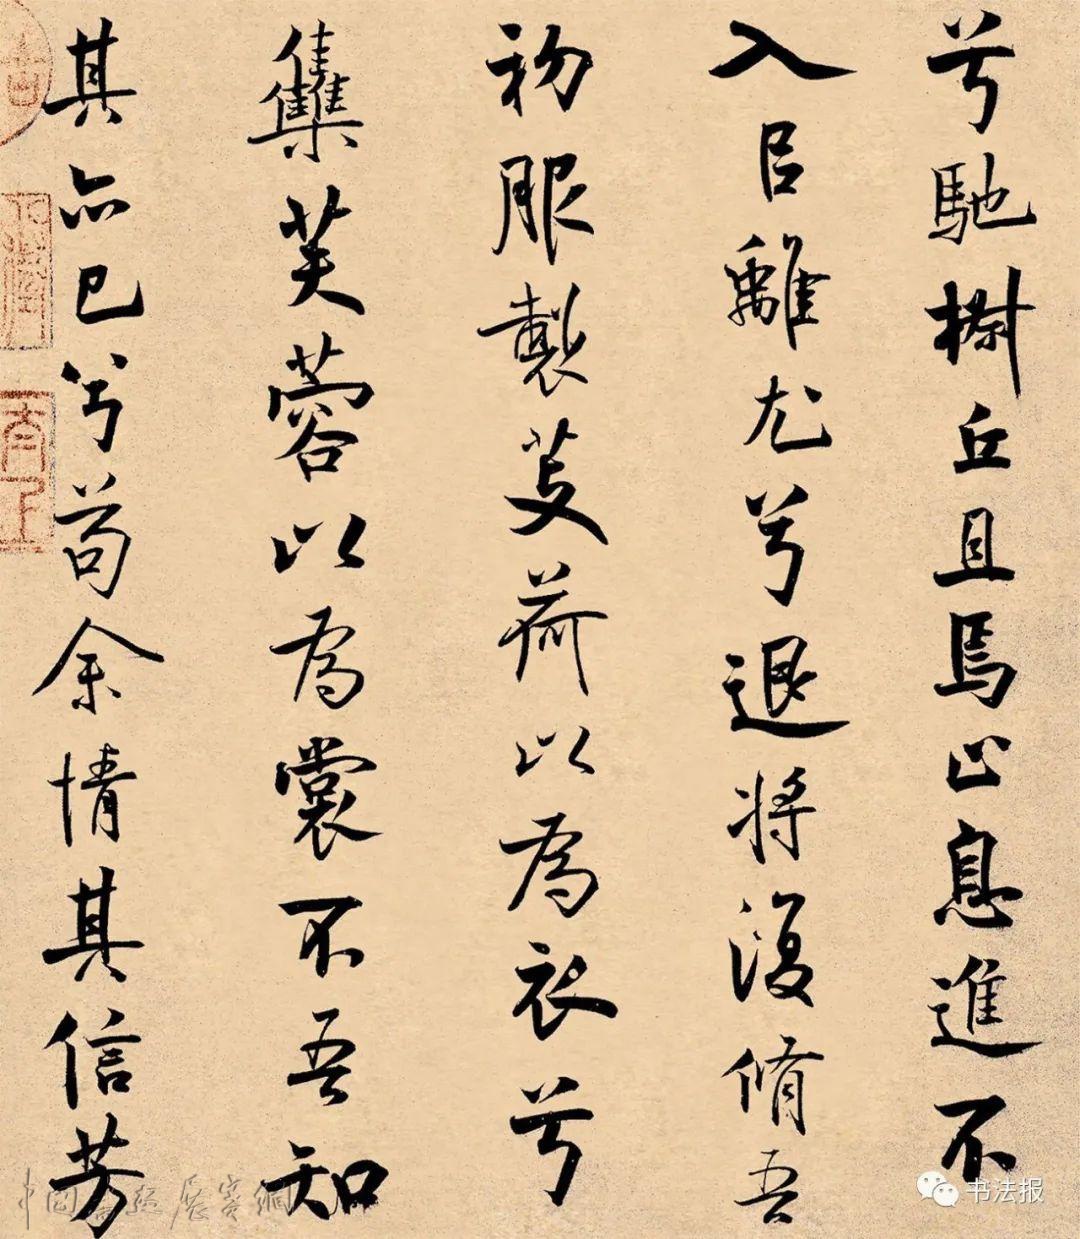 兮馳椒丘且焉止息進不
入㠯離尤兮退將復脩吾
初服製芰荷以為衣兮
雧芙蓉以為裳不吾知
其亦已兮苟余情其信芳
书法报